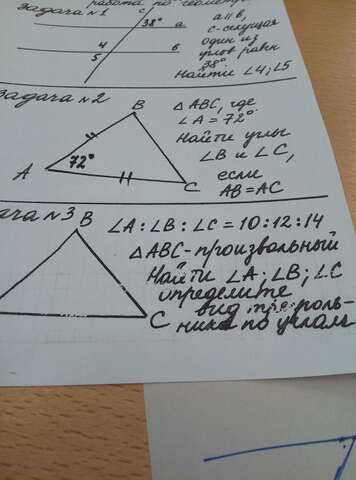 работа по геометрии
Задача №1
C
38° a
4 b
5
a||b,
c-секущая
один из
углов равен
38°.
Найти ∠4;∠5
Задача №2
B
A
72°
C
△ABC, где
∠A=72°
Найти углы
∠B и ∠C,
если
AB=AC
№3
B
C
∠A:∠B:∠C=10:12:14
△ABC-произвольный
Найти ∠A;∠B;∠C
определите
вид
по углам